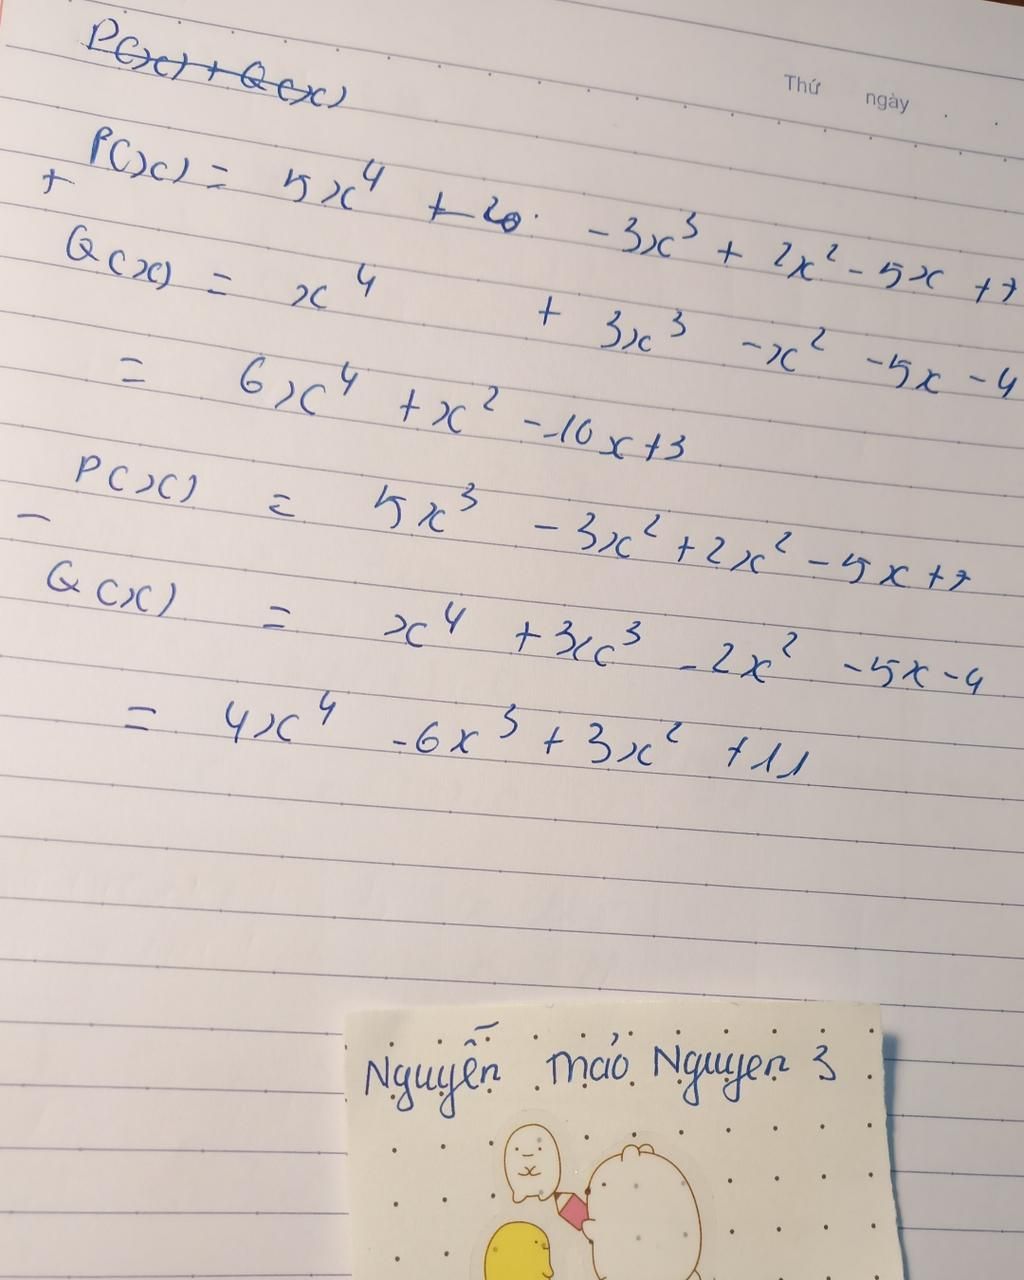 P(x) + Q(x)
Thứ ngày
P(x) = 5x⁴ - 3x³ + 2x² - 5x + 7
+
Q(x) = x⁴ + 3x³ - x² - 5x - 4
= 6x⁴ + x² - 10x + 3
P(x) = 5x³ - 3x² + 2x² - 5x + 7
-
Q(x) = x⁴ + 3x³ - 2x² - 5x - 4
= 4x⁴ - 6x³ + 3x² + 11
Nguyễn Mảo Nguyen 3